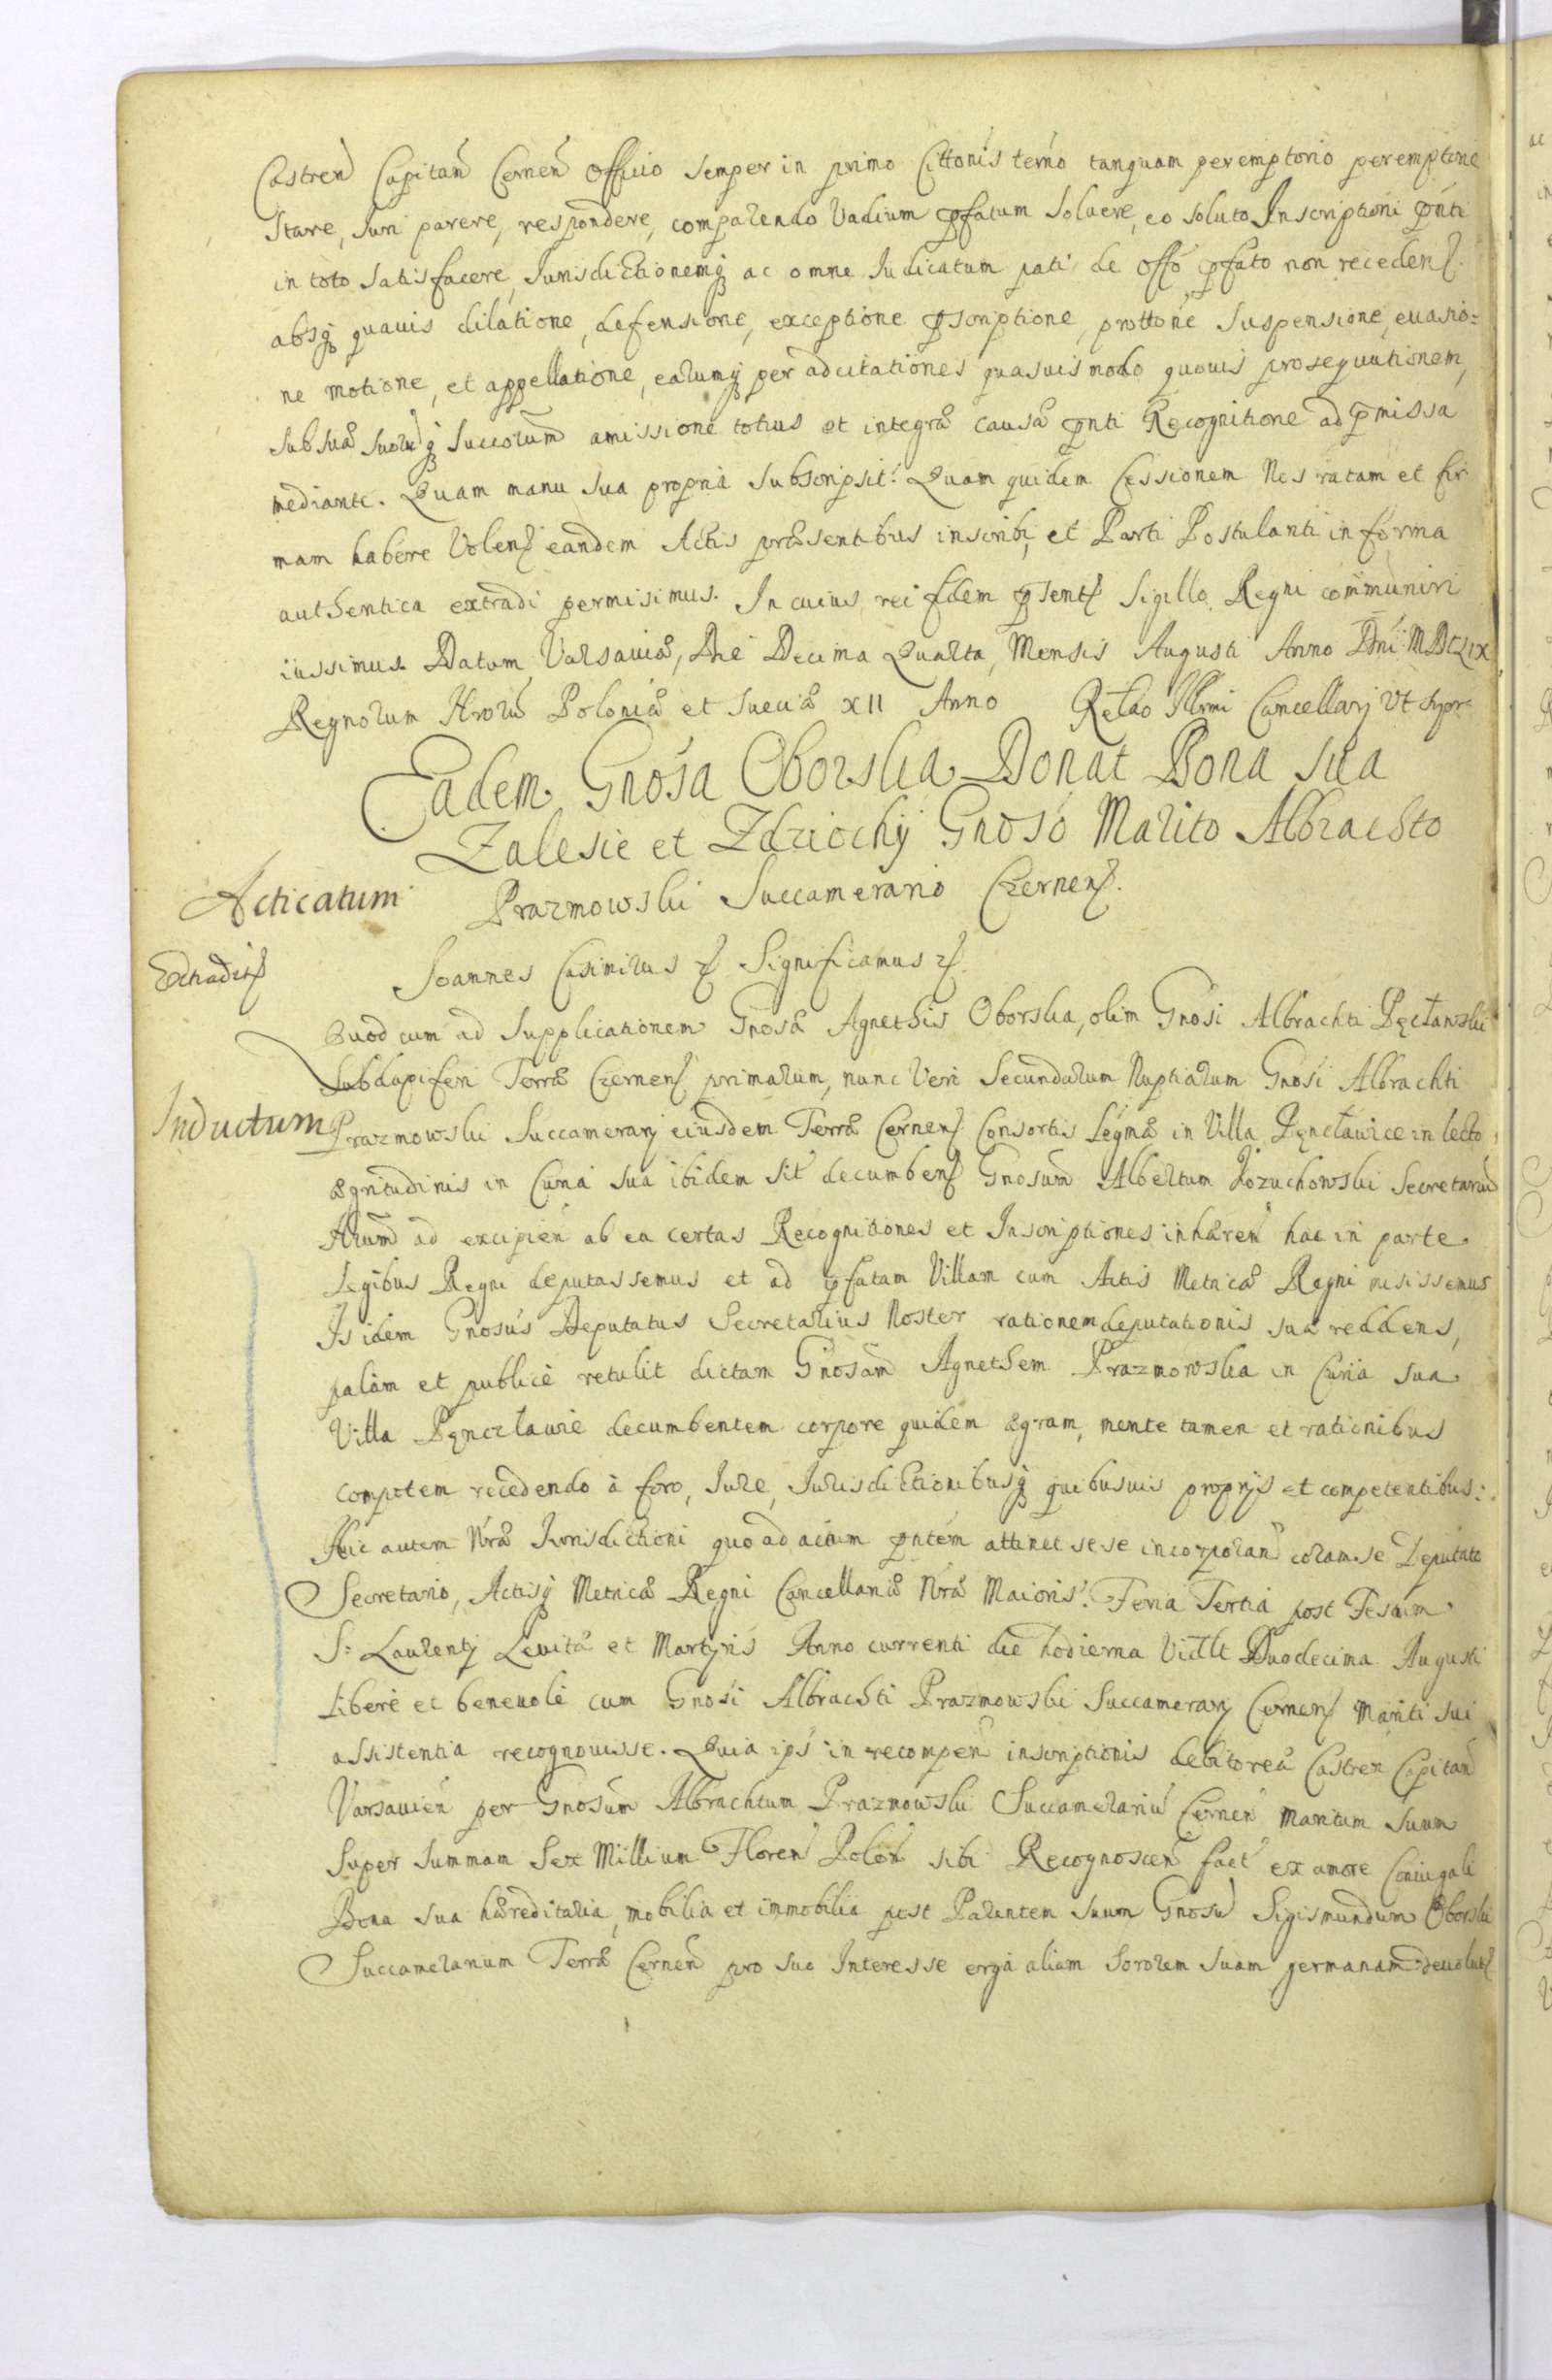 Castren Capitan Cernen Officio semper in primo Cittonis terno tanquam peremptorio peremptorie
stare, Juri parere, respondere, comparendo Vadium pfatum soluere, eo soluto Inscriptioni pnti
in toto satisfacere, Jurisdictionemq ac omne Judicatum pati de offo pfato non recedens
absq quauis dilatione, defensione, exceptione pscriptione, prottone suspensione, euasio=
ne motione, et appellatione, earumq per adcitationes quasuis modo quouis prosequutionem,
sub sua suoruq succorum amissione totius et integra causa pnti Recognitione ad pmissa
mediante. Quam manu sua propria subscripsit. Quam quidem Cessionem Nos ratam et fir
mam habere Volens eandem Actis præsentibus inscribi, et Parti Postulanti in forma
authentica extradi permisimus. In cuius rei fidem psentes Sigillo Regni communiri
iussimus. Datum Varsauiæ, Die Decima Quarta, Mensis Augusti Anno Dni MDCLIX,
Regnorum Nrorum Poloniæ et Sueciæ XII Anno Relao Illrmi Cancellarij Vt supra
Eadem Gnosa Oborska Donat Bona sua
Zalesie et Zdziochy Gnoso Marito Albrachto
Acticatum Prazmowski Succamerario Czernens.
Extradits Joannes Casimirus Significamus
Quod cum ad Supplicationem Gnosæ Agnethis Oborska, olim Gnosi Albrachti Pęcławski
Subdapiferi Terræ Czernens primarum, nunc Vero Secundarum Nuptiarum Gnosi Albrachti
Inductum Prazmowski Succamerarij eiusdem Terræ Cernens Consortis Legmæ in Villa Pęncławice in lecto
ægritudinis in Curia sua ibidem sit decumbens Gnosum Albertum Kozuchowski Secretarium
Nrum ad excipien ab ea certas Recognitiones et Inscriptiones inhæren hac in parte
legibus Regni deputassemus et ad pfatam Villam cum Actis Metricæ Regni misissemus
Is idem Gnosus Deputatus Secretarius Noster rationem deputationis suæ reddens,
palam et publice retulit dictam Gnosam Agnethem Prazmowska in Curia sua
Villa Pęnczlawie decumbentem corpore quidem ægram, mente tamen et rationibus
compotem recedendo à foro, Jure, Jurisdictionibusq quibusuis proprijs et competentibus:
Huic autem Nræ Jurisdictioni quo ad actum pntem attinet sese incorporan coram se Deputato
Secretario, Actisq Metricæ Regni Cancellariæ Nræ Maioris. Feria Tertia post Festum
S: Laurentij Leuitæ et Martyris Anno currenti die hodierna Vidlt Duodecima Augusti
libere et beneuole cum Gnosi Albrachti Prazmowski Succamerarij Cernens Mariti sui
assistentia recognouisse. Quia ips in recompen inscriptionis debitoreæ Castren Capitan
Varsauien per Gnosum Albrachtum Prazmowski Succamerariu Cernen Maritum suum
super summam Sex Millium Floren Polon sibi Recognoscen fact ex amore Coniugali
Bona sua hæreditaria, mobilia et immobilia post Parentem suum Gnosu Sigismundum Oborski
Succamerarium Terræ Cernen pro suo Interesse erga aliam Sororem suam germanam deuoluts